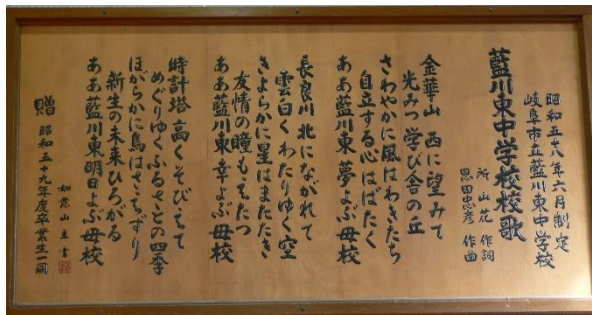 昭和五十八年六月制定
岐阜市立藍川東中学校
藍川東中学校校歌
所山花 作詞
恩田忠彦 作曲
金華山 西に望みて
光みつ 学び舎の丘
さわやかに風はわきたち
自立する心はばたく
ああ藍川東 夢よぶ母校
長良川 北にながれて
雲白く わたりゆく空
きよらかに星はまたたき
友情の瞳もえたつ
ああ藍川東 幸よぶ母校
時計塔 高くそびえて
めぐりゆくふるさとの四季
ほがらかに鳥はさえずり
新生の未来ひろがる
ああ藍川東 明日よぶ母校
如意山主書
贈 昭和五十九年度卒業生一同